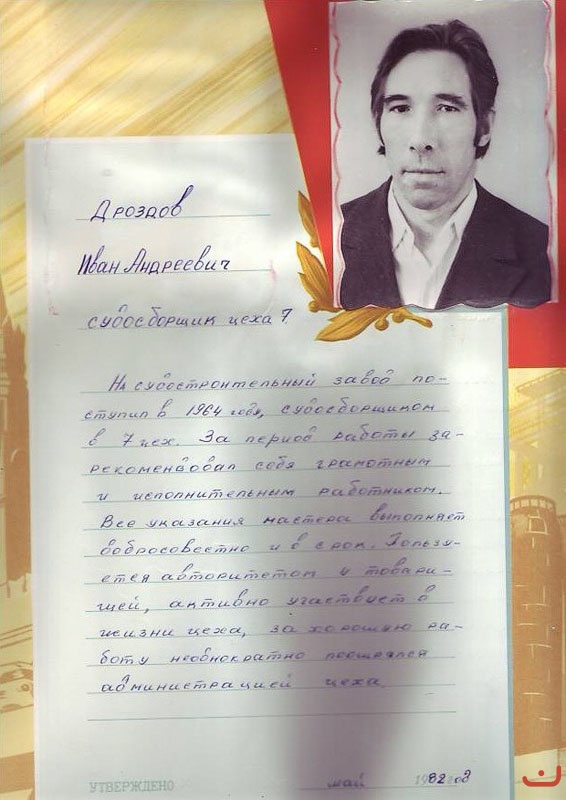 Дроздов
Иван Андреевич
судосборщик цеха 7
На судостроительный завод по-
ступил в 1964 году, судосборщиком
в 7 цех. За период работы за-
рекомендовал себя грамотным
и исполнительным работником.
Все указания мастера выполняет
добросовестно и в срок. Пользу-
ется авторитетом у товари-
щей, активно участвует в
жизни цеха, за хорошую ра-
боту неоднократно поощрялся
администрацией цеха.
УТВЕРЖДЕНО май 1982 год